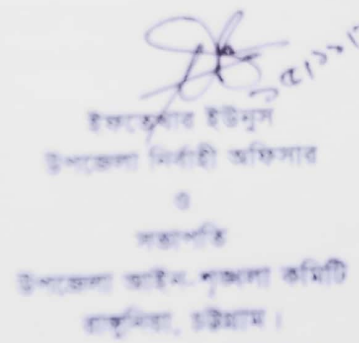 ইফতেখার ইউনুস
উপজেলা নির্বাহী অফিসার
ও
সভাপতি
উপজেলা আইন-শৃঙ্খলা কমিটি
রাঙ্গুনিয়া, চট্টগ্রাম।